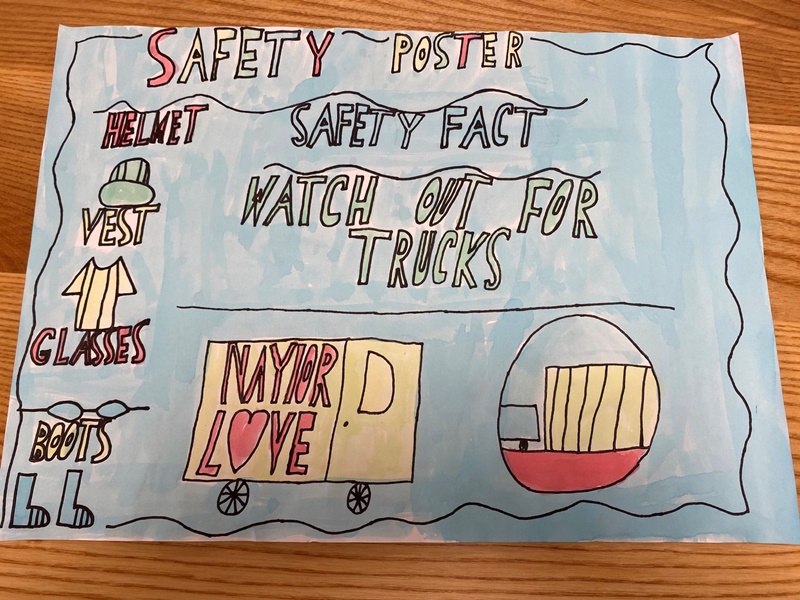 SAFETY POSTER
HELMET
SAFETY FACT
WATCH OUT FOR
TRUCKS
VEST
GLASSES
BOOTS
NAYlOR
LOVE